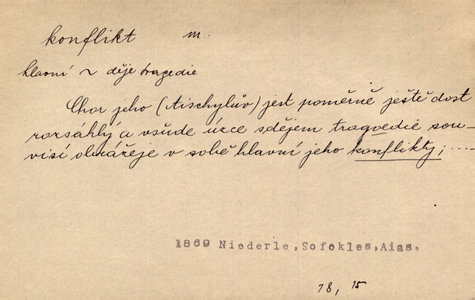 konflikt m.
hlavní ~ děje tragedie
Chor jeho (Aischylův) jest poměrně ještě dost
rozsáhlý a všude úzce s dějem tragoedie sou-
visí obrážeje v sobě hlavní jeho konflikty; ....
1869 Niederle, Sofokles, Aias.
18, 15